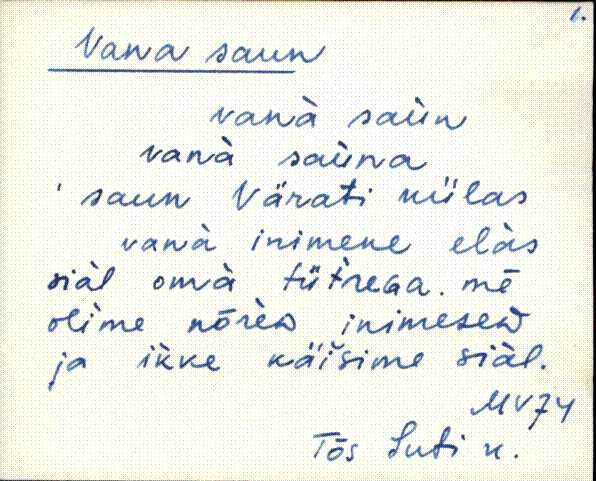 1.
Vana saun
vanà saùn
vanà saùna
saun Värati külas
vanà inimene elàs
siàl omà tütrega. mē
olìme nōrèD inimeseD
ja ìkke käìsime siàl.
MV74
Tōs Suti k.